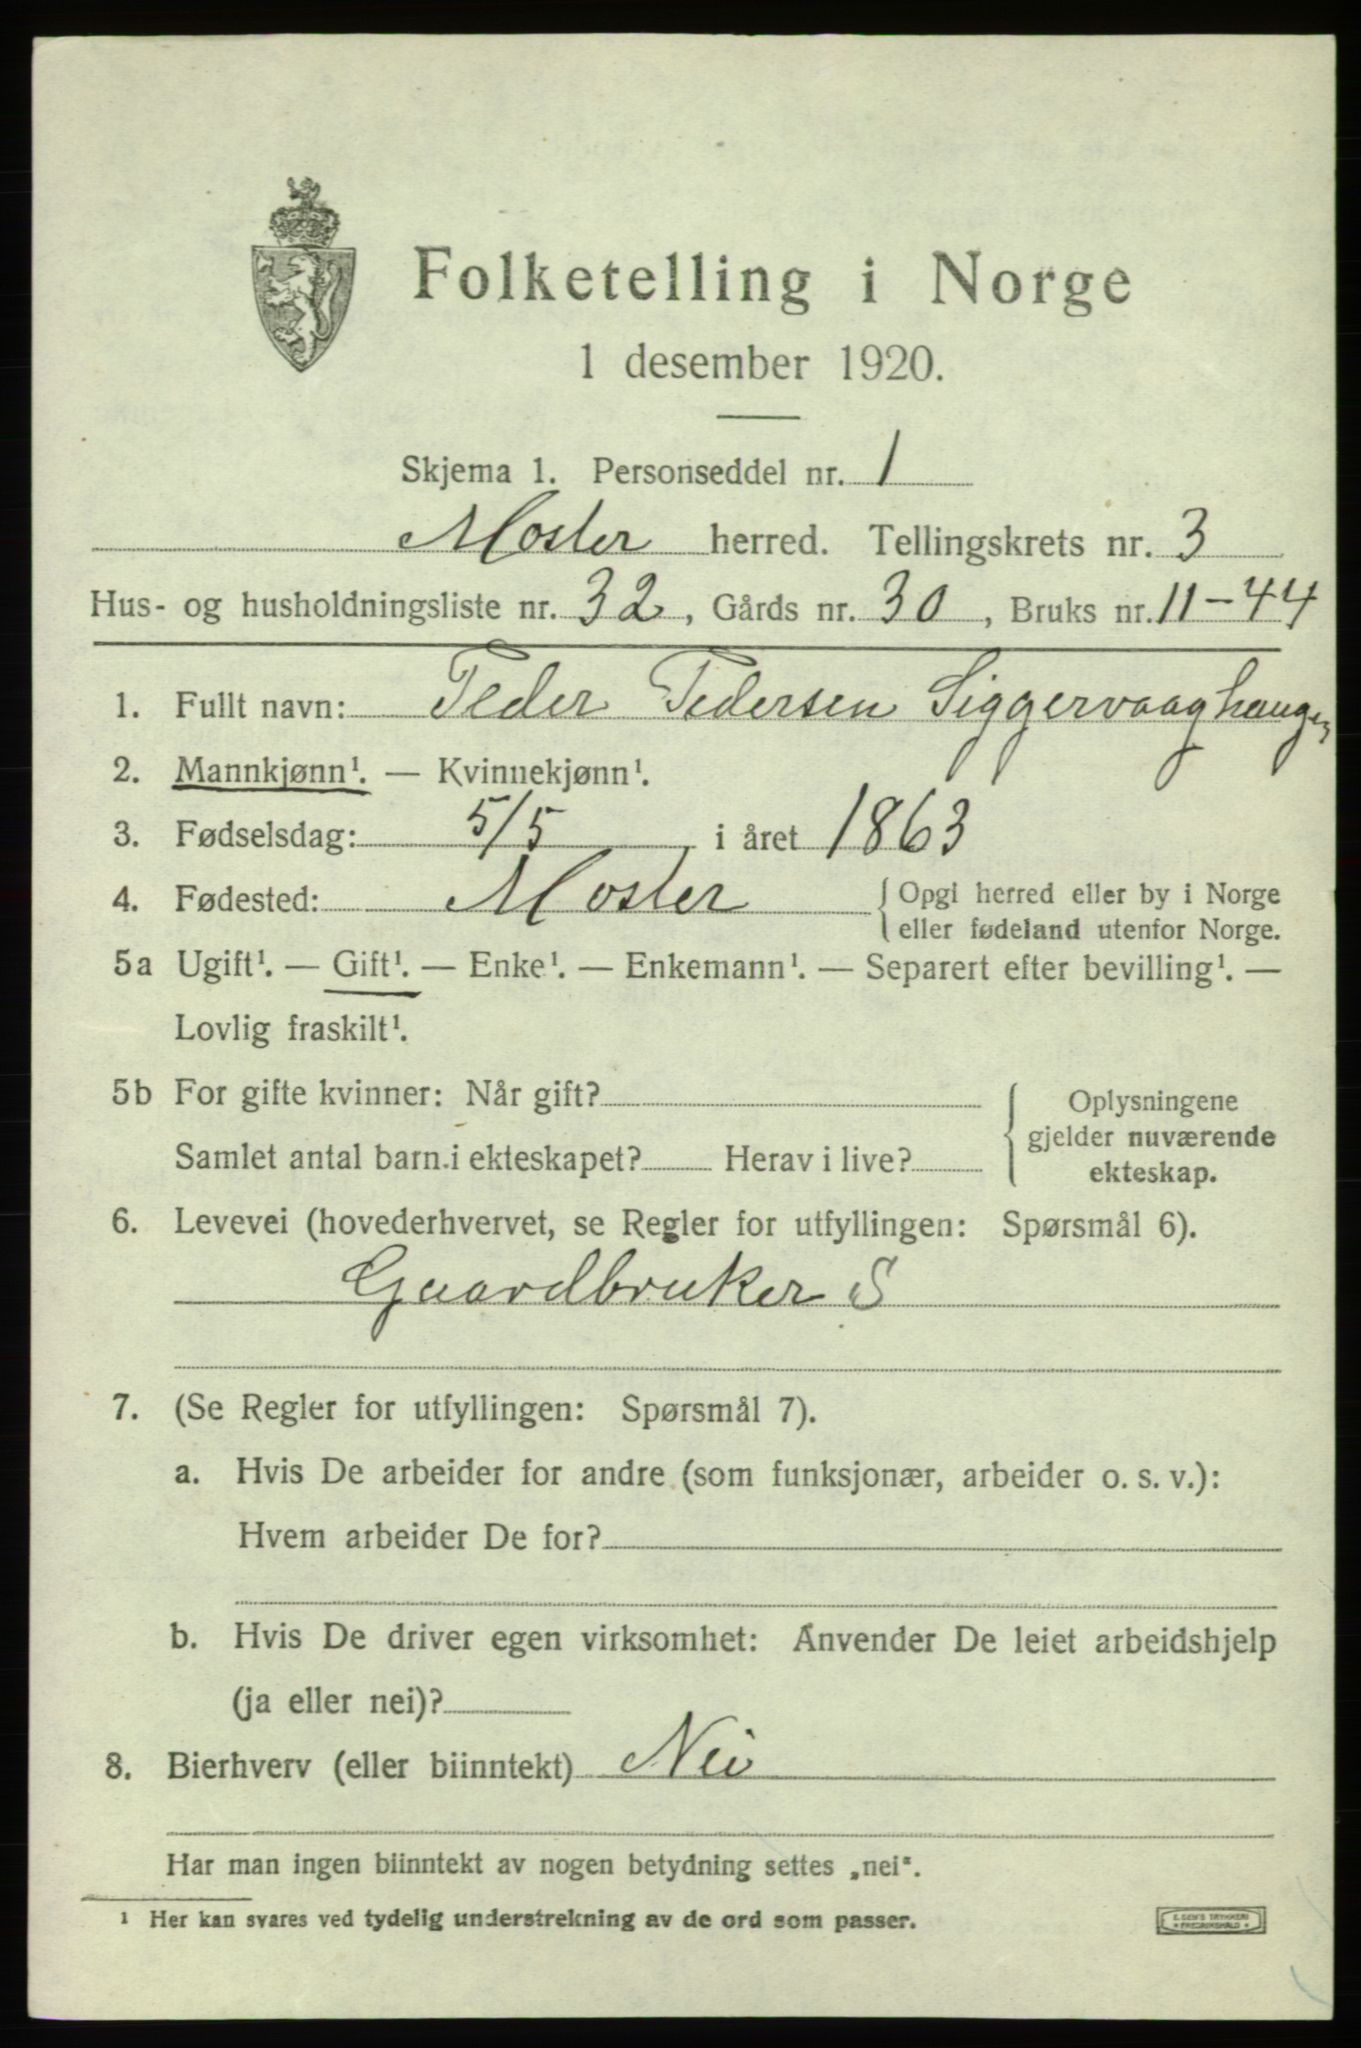 Folketelling i Norge
1 desember 1920.
Skjema 1. Personseddel nr. 1
Moster herred. Tellingskrets nr. 3
Hus- og husholdningsliste nr. 32, Gårds nr. 30, Bruks nr. 11-44
1. Fullt navn: Peder Pedersen Siggervaaghaugen
2. Mannkjønn¹. — Kvinnekjønn¹.
3. Fødselsdag: 5/5 i året 1863
4. Fødested: Moster { Opgi herred eller by i Norge
eller fødeland utenfor Norge.
5a Ugift¹. — Gift¹. — Enke¹. — Enkemann¹. — Separert efter bevilling¹. —
Lovlig fraskilt¹.
5b For gifte kvinner: Når gift?
Samlet antal barn i ekteskapet? Herav i live?
Oplysningene
gjelder nuværende
ekteskap.
6. Levevei (hovederhvervet, se Regler for utfyllingen: Spørsmål 6).
Gaardbruker S
7. (Se Regler for utfyllingen: Spørsmål 7).
a. Hvis De arbeider for andre (som funksjonær, arbeider o. s. v.):
Hvem arbeider De for?
b. Hvis De driver egen virksomhet: Anvender De leiet arbeidshjelp
(ja eller nei)?
8. Bierhverv (eller biinntekt) Nei
Har man ingen biinntekt av nogen betydning settes „nei“.
¹ Her kan svares ved tydelig understrekning av de ord som passer.
E. SEM'S TRYKKERI
FREDRIKSHALD